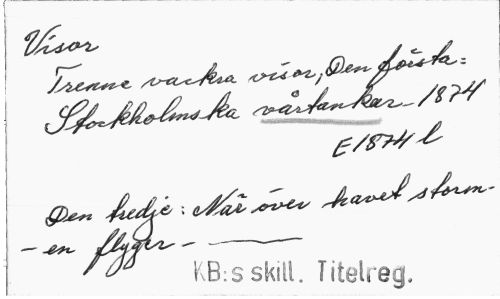 Visor
Trenne vackra visor, Den första:
Stockholmska vårtankar 1874
E 1874 l
Den tredje: När över havet storm-
- en flyger -
KB:s skill. Titelreg.